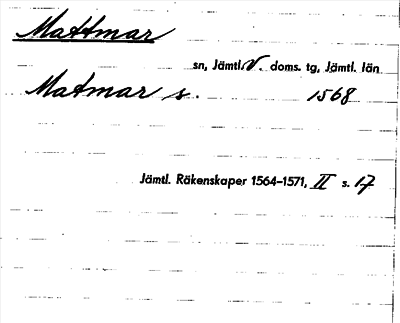 Mattmar
sn, Jämtl. V. doms. tg, Jämtl. län
Matmar s. 1568
Jämtl. Räkenskaper 1564–1571, II s. 17